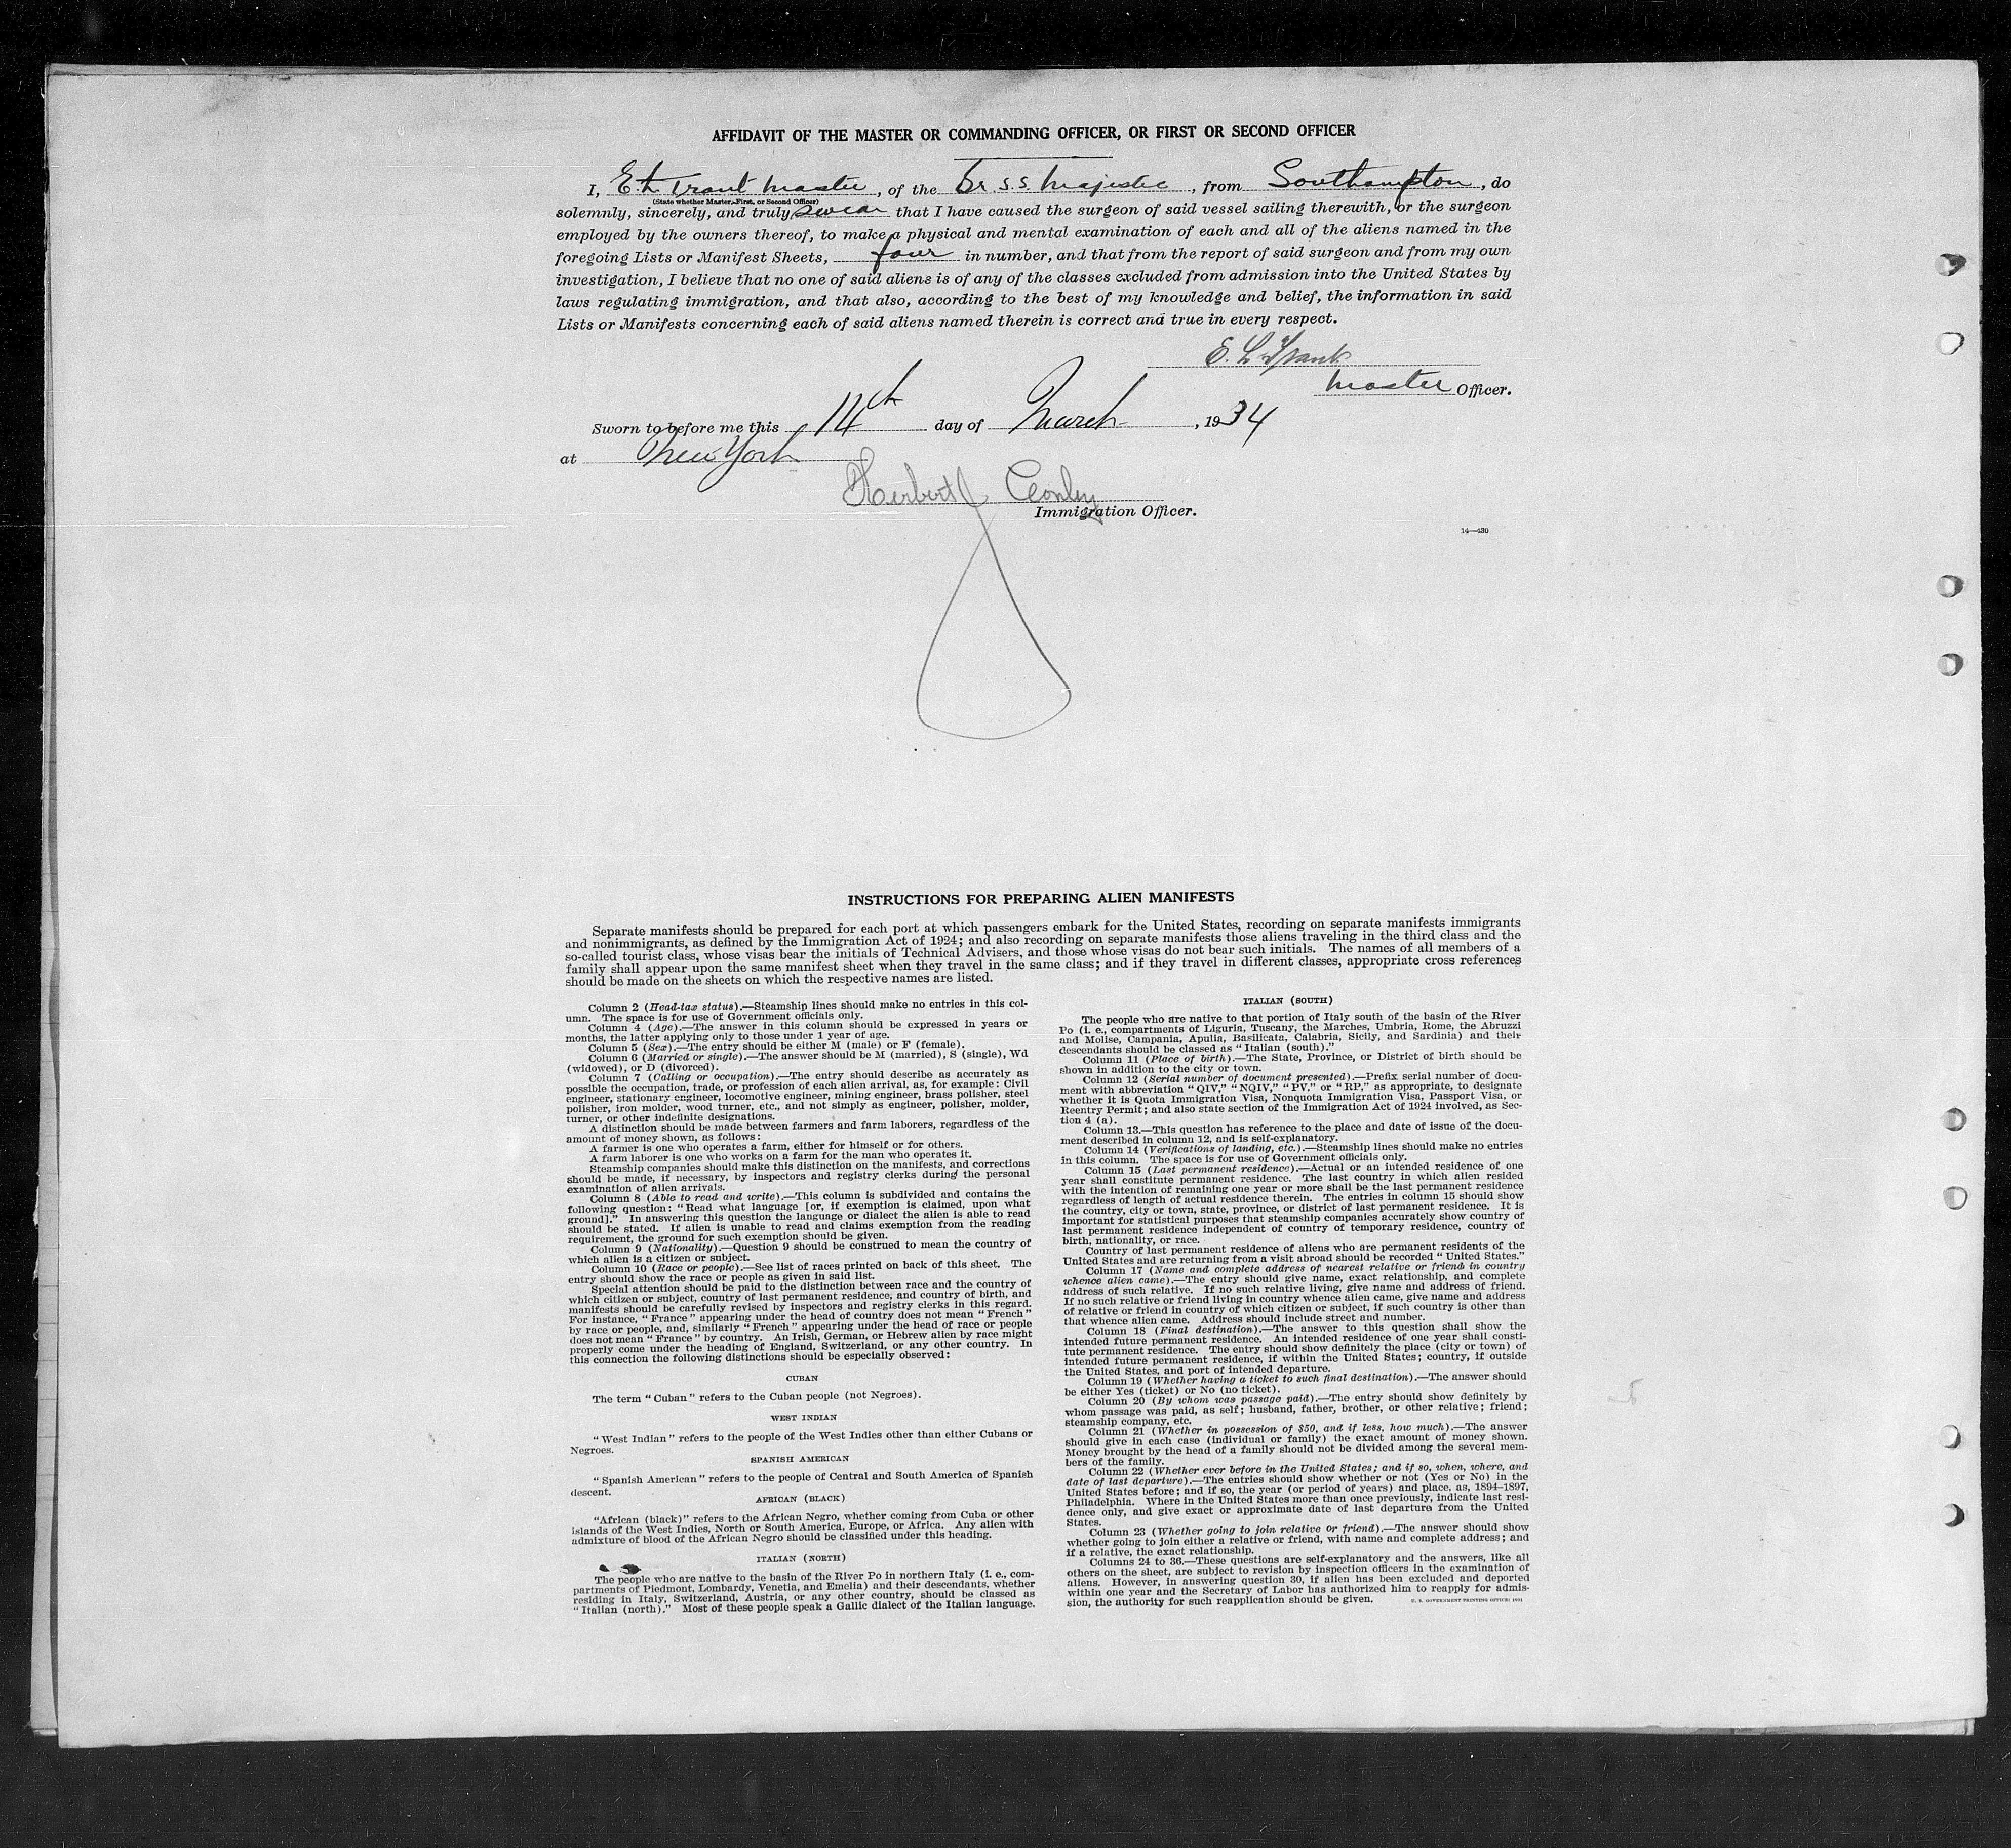 AFFIDAVIT OF THE MASTER OR COMMANDING OFFICER, OR FIRST OR SECOND OFFICER
I, E. L. Trant Master, of the Br. S.S. Majestic, from Southampton, do
(State whether Master, First, or Second Officer)
solemnly, sincerely, and truly swear that I have caused the surgeon of said vessel sailing therewith, or the surgeon
employed by the owners thereof, to make a physical and mental examination of each and all of the aliens named in the
foregoing Lists or Manifest Sheets, four in number, and that from the report of said surgeon and from my own
investigation, I believe that no one of said aliens is of any of the classes excluded from admission into the United States by
laws regulating immigration, and that also, according to the best of my knowledge and belief, the information in said
Lists or Manifests concerning each of said aliens named therein is correct and true in every respect.
E. L. Trant
Master Officer.
Sworn to before me this 14th day of March, 1934
at New York
Herbert J Conley
Immigration Officer.
14—430
INSTRUCTIONS FOR PREPARING ALIEN MANIFESTS
Separate manifests should be prepared for each port at which passengers embark for the United States, recording on separate manifests immigrants
and nonimmigrants, as defined by the Immigration Act of 1924; and also recording on separate manifests those aliens traveling in the third class and the
so-called tourist class, whose visas bear the initials of Technical Advisers, and those whose visas do not bear such initials. The names of all members of a
family shall appear upon the same manifest sheet when they travel in the same class; and if they travel in different classes, appropriate cross references
should be made on the sheets on which the respective names are listed.
Column 2 (Head-tax status).—Steamship lines should make no entries in this col-
umn. The space is for use of Government officials only.
Column 4 (Age).—The answer in this column should be expressed in years or
months, the latter applying only to those under 1 year of age.
Column 5 (Sex).—The entry should be either M (male) or F (female).
Column 6 (Married or single).—The answer should be M (married), S (single), Wd
(widowed), or D (divorced).
Column 7 (Calling or occupation).—The entry should describe as accurately as
possible the occupation, trade, or profession of each alien arrival, as, for example: Civil
engineer, stationary engineer, locomotive engineer, mining engineer, brass polisher, steel
polisher, iron molder, wood turner, etc., and not simply as engineer, polisher, molder,
turner, or other indefinite designations.
A distinction should be made between farmers and farm laborers, regardless of the
amount of money shown, as follows:
A farmer is one who operates a farm, either for himself or for others.
A farm laborer is one who works on a farm for the man who operates it.
Steamship companies should make this distinction on the manifests, and corrections
should be made, if necessary, by inspectors and registry clerks during the personal
examination of alien arrivals.
Column 8 (Able to read and write).—This column is subdivided and contains the
following question: "Read what language [or, if exemption is claimed, upon what
ground]." In answering this question the language or dialect the alien is able to read
should be stated. If alien is unable to read and claims exemption from the reading
requirement, the ground for such exemption should be given.
Column 9 (Nationality).—Question 9 should be construed to mean the country of
which alien is a citizen or subject.
Column 10 (Race or people).—See list of races printed on back of this sheet. The
entry should show the race or people as given in said list.
Special attention should be paid to the distinction between race and the country of
which citizen or subject, country of last permanent residence, and country of birth, and
manifests should be carefully revised by inspectors and registry clerks in this regard.
For instance, "France" appearing under the head of country does not mean "French"
by race or people, and, similarly "French" appearing under the head of race or people
does not mean "France" by country. An Irish, German, or Hebrew alien by race might
properly come under the heading of England, Switzerland, or any other country. In
this connection the following distinctions should be especially observed:
CUBAN
The term "Cuban" refers to the Cuban people (not Negroes).
WEST INDIAN
"West Indian" refers to the people of the West Indies other than either Cubans or
Negroes.
SPANISH AMERICAN
"Spanish American" refers to the people of Central and South America of Spanish
descent.
AFRICAN (BLACK)
"African (black)" refers to the African Negro, whether coming from Cuba or other
islands of the West Indies, North or South America, Europe, or Africa. Any alien with
admixture of blood of the African Negro should be classified under this heading.
ITALIAN (NORTH)
The people who are native to the basin of the River Po in northern Italy (i. e., com-
partments of Piedmont, Lombardy, Venetia, and Emelia) and their descendants, whether
residing in Italy, Switzerland, Austria, or any other country, should be classed as
"Italian (north)." Most of these people speak a Gallic dialect of the Italian language.
ITALIAN (SOUTH)
The people who are native to that portion of Italy south of the basin of the River
Po (i. e., compartments of Liguria, Tuscany, the Marches, Umbria, Rome, the Abruzzi
and Molise, Campania, Apulia, Basilicata, Calabria, Sicily, and Sardinia) and their
descendants should be classed as "Italian (south)."
Column 11 (Place of birth).—The State, Province, or District of birth should be
shown in addition to the city or town.
Column 12 (Serial number of document presented).—Prefix serial number of docu-
ment with abbreviation "QIV," "NQIV," "PV," or "RP," as appropriate, to designate
whether it is Quota Immigration Visa, Nonquota Immigration Visa, Passport Visa, or
Reentry Permit; and also state section of the Immigration Act of 1924 involved, as Sec-
tion 4 (a).
Column 13.—This question has reference to the place and date of issue of the docu-
ment described in column 12, and is self-explanatory.
Column 14 (Verifications of landing, etc.).—Steamship lines should make no entries
in this column. The space is for use of Government officials only.
Column 15 (Last permanent residence).—Actual or an intended residence of one
year shall constitute permanent residence. The last country in which alien resided
with the intention of remaining one year or more shall be the last permanent residence
regardless of length of actual residence therein. The entries in column 15 should show
the country, city or town, state, province, or district of last permanent residence. It is
important for statistical purposes that steamship companies accurately show country of
last permanent residence independent of country of temporary residence, country of
birth, nationality, or race.
Country of last permanent residence of aliens who are permanent residents of the
United States and are returning from a visit abroad should be recorded "United States."
Column 17 (Name and complete address of nearest relative or friend in country
whence alien came).—The entry should give name, exact relationship, and complete
address of such relative. If no such relative living, give name and address of friend.
If no such relative or friend living in country whence alien came, give name and address
of relative or friend in country of which citizen or subject, if such country is other than
that whence alien came. Address should include street and number.
Column 18 (Final destination).—The answer to this question shall show the
intended future permanent residence. An intended residence of one year shall consti-
tute permanent residence. The entry should show definitely the place (city or town) of
intended future permanent residence, if within the United States; country, if outside
the United States, and port of intended departure.
Column 19 (Whether having a ticket to such final destination).—The answer should
be either Yes (ticket) or No (no ticket).
Column 20 (By whom was passage paid).—The entry should show definitely by
whom passage was paid, as self; husband, father, brother, or other relative; friend;
steamship company, etc.
Column 21 (Whether in possession of $50, and if less, how much).—The answer
should give in each case (individual or family) the exact amount of money shown.
Money brought by the head of a family should not be divided among the several mem-
bers of the family.
Column 22 (Whether ever before in the United States; and if so, when, where, and
date of last departure).—The entries should show whether or not (Yes or No) in the
United States before; and if so, the year (or period of years) and place, as, 1894–1897,
Philadelphia. Where in the United States more than once previously, indicate last resi-
dence only, and give exact or approximate date of last departure from the United
States.
Column 23 (Whether going to join relative or friend).—The answer should show
whether going to join either a relative or friend, with name and complete address; and
if a relative, the exact relationship.
Columns 24 to 36.—These questions are self-explanatory and the answers, like all
others on the sheet, are subject to revision by inspection officers in the examination of
aliens. However, in answering question 30, if alien has been excluded and deported
within one year and the Secretary of Labor has authorized him to reapply for admis-
sion, the authority for such reapplication should be given.
U. S. GOVERNMENT PRINTING OFFICE: 1931